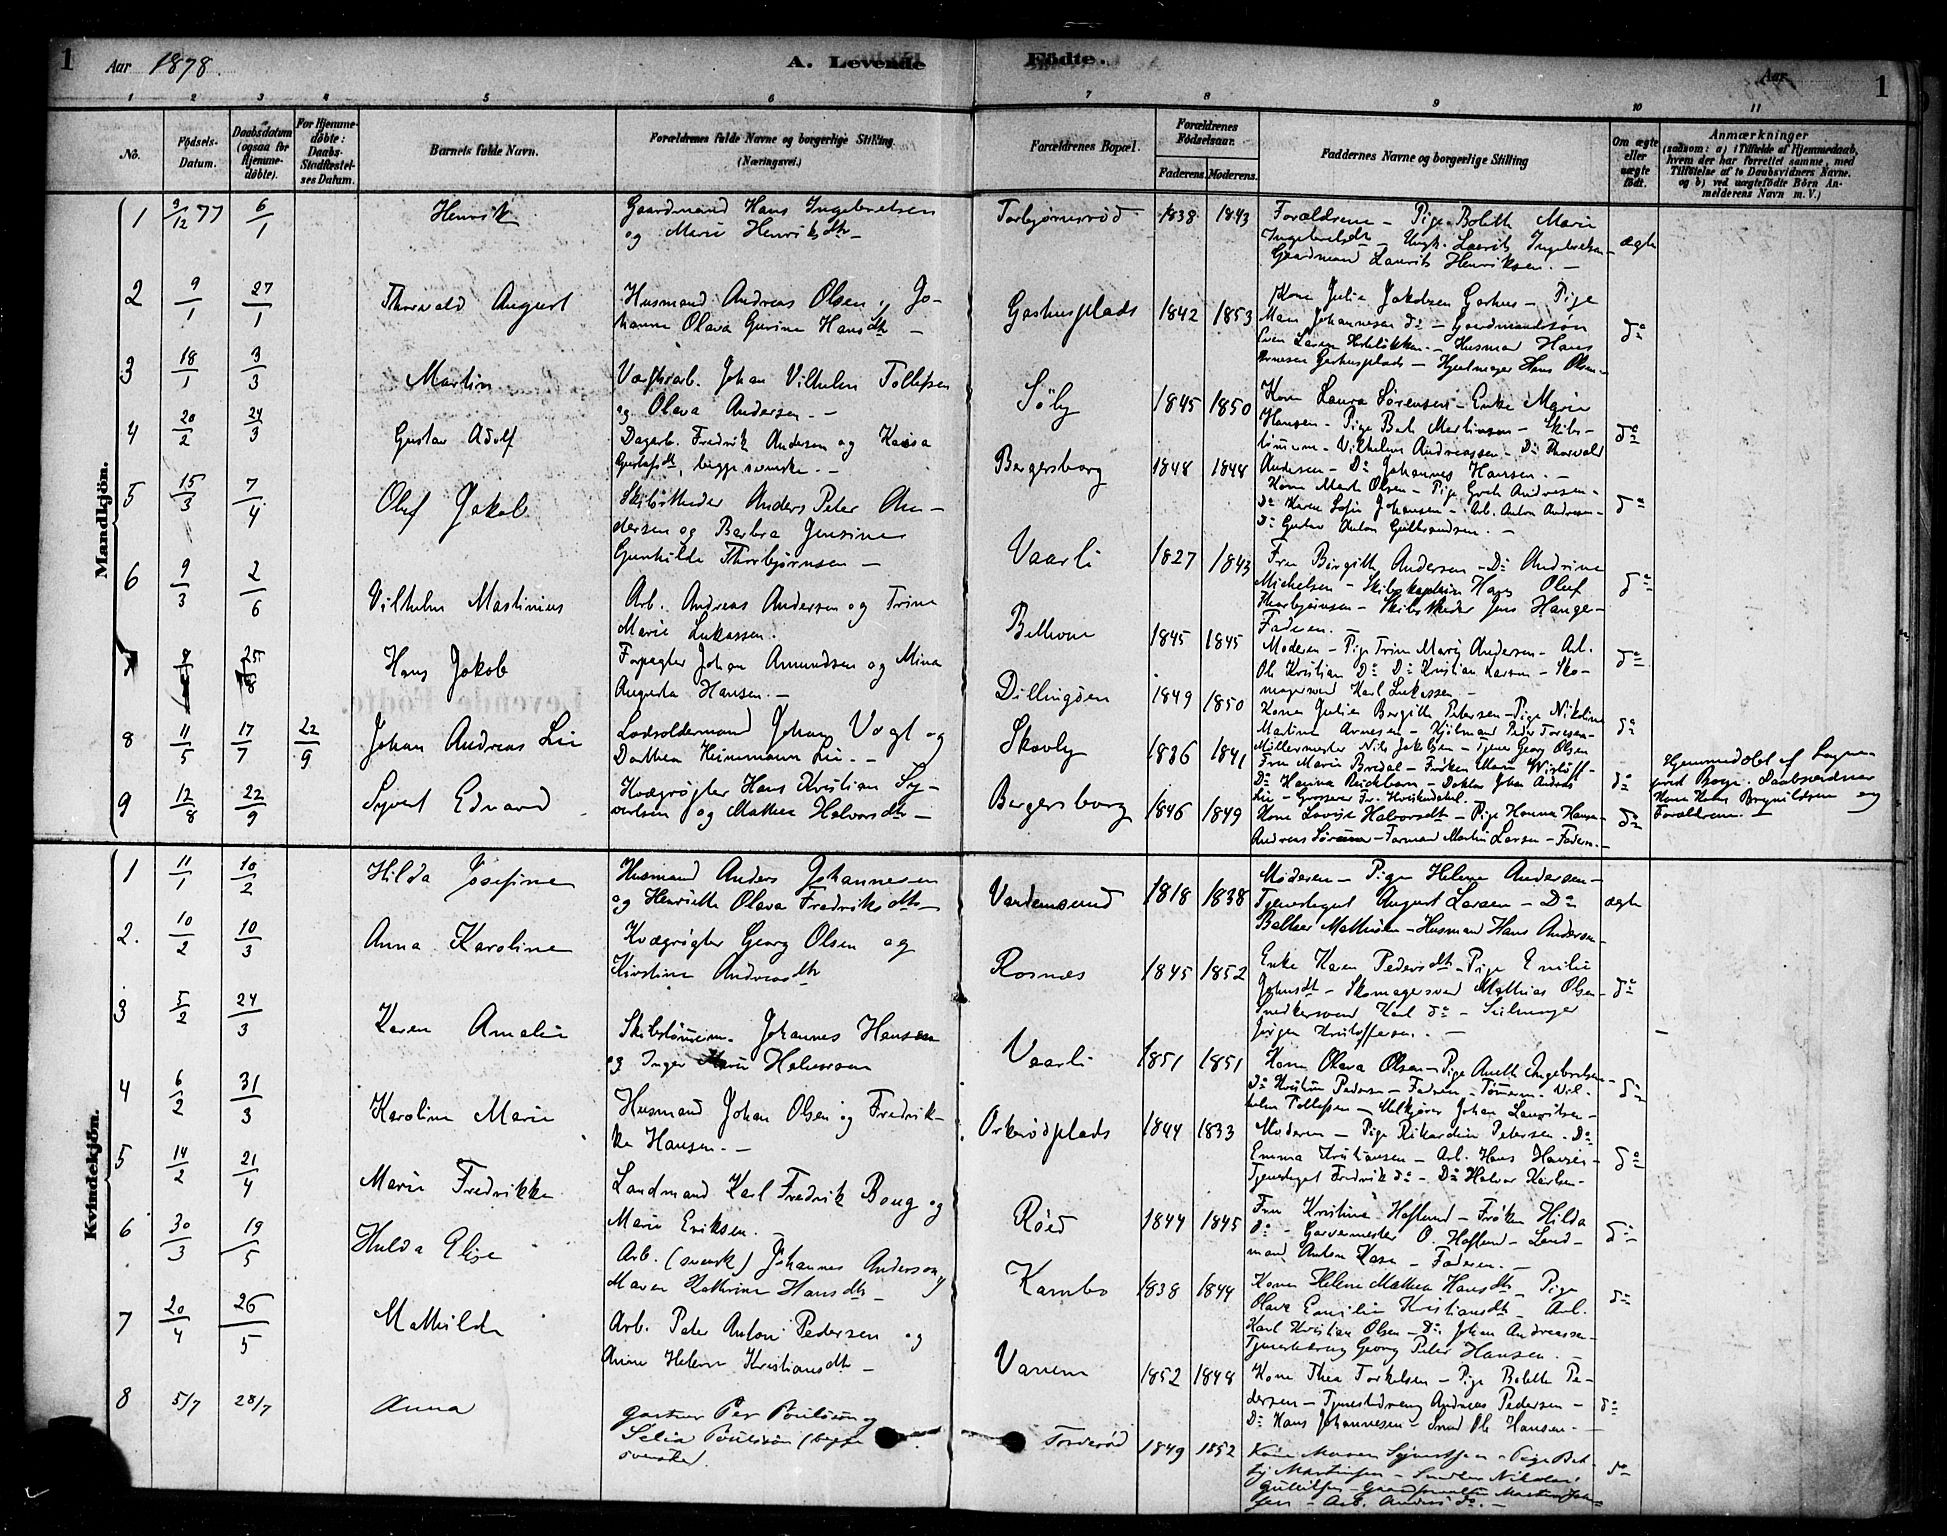 1 Aar 1878. A. Levende Födte. Aar 1
1 2 3 4 5 6 7 8 9 10 11
No.
Födsels-Datum.
Daabsdatum (ogsaa for Hjemme-döbte).
For Hjemme-döbte: Daabs-Stadfæstel-ses Datum.
Barnets fulde Navn.
Forældrenes fulde Navne og borgerlige Stilling (Næringsvei.)
Forældrenes Bopæl.
Forældrenes Födselsaar.
Faderens. Moderens.
Faddernes Navne og borgerlige Stilling
Om ægte eller uægte födt.
Anmærkninger
(saasom: a) i Tilfælde af Hjemmedaab,
hvem der har forrettet samme, med
Tilföielse af to Daabsvidners Navne.
og b) ved uægtefödte Börn An-
melderens Navn m. V.)
Mandkjön.
1 9/12 77 6/1 Henrik Gaardmand Hans Ingebretsen
og Marie Henriksdtr - Torbjørnsrød 1838 1843
Forældrene - Pige Bolith Marie
Ingebretsdt - Ungk. Laurits Ingebretsen
Gaardmand Laurits Henriksen. - ægte
2 9/1 27/1 Thorvald August Husmand Andreas Olsen og Jo-
hanne Olava Gurine Hansdtr - Garhusplads 1842 1853
Kone Julie Jakobsen Garhus - Pige
Mari Johannesen do - Gaardmandssøn
Even Larsen - Husmand Hans
Arnesen Garhusplads - Hans Olsen - do
3 18/1 3/3 Martin Værftsarb. Johan Vilhelm Tollefsen
og Olava Andersen. - Söly 1845 1850
Kone Laura Sørensen - Enke Marie
Hansen - Pige Martinsen - Skibs-
tømmerm. Vilhelm Andreassen - Do Thorvald
Andersen - Do Johannes Hansen. - do
4 20/2 24/3 Gustav Adolf Dagarb. Fredrik Andersen og Kaisa
Gustafsdtr, begge svenske. - Bergersborg 1848 1848
Kone Marth Olsen - Pige Andresen -
Do Karen Sofie Johansen - Arb. Anton Andresen -
Do Gustav Anton Gulbrandsen. - do
5 15/3 7/4 Oluf Jakob Skibsrheder Anders Peter An-
dersen og Barbra Jensine
Gunhilde Thorbjørnsen - Vaarli 1827 1843
Fru Birgith Andersen - Do Andrine
Michelsen - Skibskaptein Hans Oluf
Thorbjørnsen - Skibsrheder Jens Hauge -
Faderen. - do
6 9/3 2/6 Vilhelm Martinius Arb. Andreas Andersen og Trine
Marie Lukassen. 1845 1845
Moderen - Pige Trine Marie Andersen - Arb.
Ole Kristian Do Do Kristian Larsen - Sko-
magersvend Karl Lukassen - do
7 25 Hans Jakob Forpagter Johan Amundsen og Mina
Augusta Hansen. - Dillingøen 1849 1850
Kone Julie Bergith Petersen - Pige Nikoline
Martine Arnesen - Peder Toresen -
Møllermester Nils Jakobsen - Tjener Georg Olsen do
8 11/5 17/7 22/9 Johan Andreas Lie Lodsoldermand Johan Vogt og
Dorthea Heinemann Lie. - Skovly 1836 1841
Fru Marie Bredal - Frøken Marie Wisløff -
Do Hanna - Doktor Johan Andreas
Lie - Grosserer Fr. do
Hjemmedøbt af Sogne-
prest Daabsvidner
Kone Brynildsen og
Forældrene. -
9 12/8 22/9 Syvert Edvard Kvægrøgter Hans Kristian Sy-
vertsen og Mathea Halvorsdtr - Bergersborg 1846 1849
Kone Lovise Halvorsdt - Pige Hanna Hansen -
Andreas - Formand Martin Larsen - Faderen. - do
Kvindekjön.
1 11/1 10/2 Hilda Josefine Husmand Anders Johannesen
og Henriette Olava Fredriksdtr - Vardemsund 1818 1838
Moderen - Pige Helene Andersen -
Tjenestegut August Larsen - Do
Baltser Mathisen - Husmand Hans Andersen - ægte
2. 10/2 10/3 Anna Karoline Kvægrøgter Georg Olsen og
Kirstine Andreasdtr Rosnæs 1845 1852
Enke Karen Pedersdtr - Pige Emilie
Johnsdt - Skomagersvend Mathias Olsen -
Snedkersvend Karl do - Seilmager
Jørgen Kristoffersen. - do
3 5/2 24/3 Karen Amalie Skibstømerm. Johannes Hansen
og Inger Marie Halvorsen Vaarli 1851 1851
Kone Olava Olsen - Pige Aneth Ingebretsen -
Do Kristine Pedersen - Faderen - Tømerm. Vil-
helm Tollefsen - Melkjører Johan Lauritsen - do
4 6/2 31/3 Karoline Marie Husmand Johan Olsen og Fredrik-
ke Hansen. - Orkerødplads 1844 1833
Moderen - Pige Rikardine Petersen - Do
Emma Kristiansen - Arb. Hans Hansen -
Tjenestegut Fredrik do - Do Halvor Karlsen - do
5 14/2 21/4 Marie Fredrikke Landmand Karl Fredrik Boug og
Marie Eriksen. - Røed 1844 1845
Fru Kristine Høflund - Frøken Hilda
do - Garvermester O. Høflund - Land-
mand Anton - Faderen. - do
6 30/3 19/5 Hulda Elise Arb. (svensk) Johannes Anderson og
Maren Kathrine Hansdtr - Kambo 1838 1844
Kone Helene Mathea Hansdtr - Pige
Olava Emilie Kristiansdtr - Arb.
Karl Kristian Olsen - Do Johan Andreassen -
Tjenestedreng Georg Peter Hansen. - do
7 20/4 26/5 Mathilde Arb. Peter Anton Pedersen og
Anne Helene Kristiansdtr - Vanem 1852 1848
Kone Thea Torkelsen - Pige Bolette Pe-
dersen - Tjenestedreng Andreas Pedersen -
Do Hans Johannesen - Smed Ole Hansen. - do
8 5/7 28/7 Anna Gartner Per Poulsson og
Selia Poulsson (begge
svenske). Torderød 1849 1852
Kone Maren Syvertsen - Pige Bet-
sy Martinsen - Snedker Nikolai
Gulliksen - Martin Johan-
sen - Arb. Anders do. - do